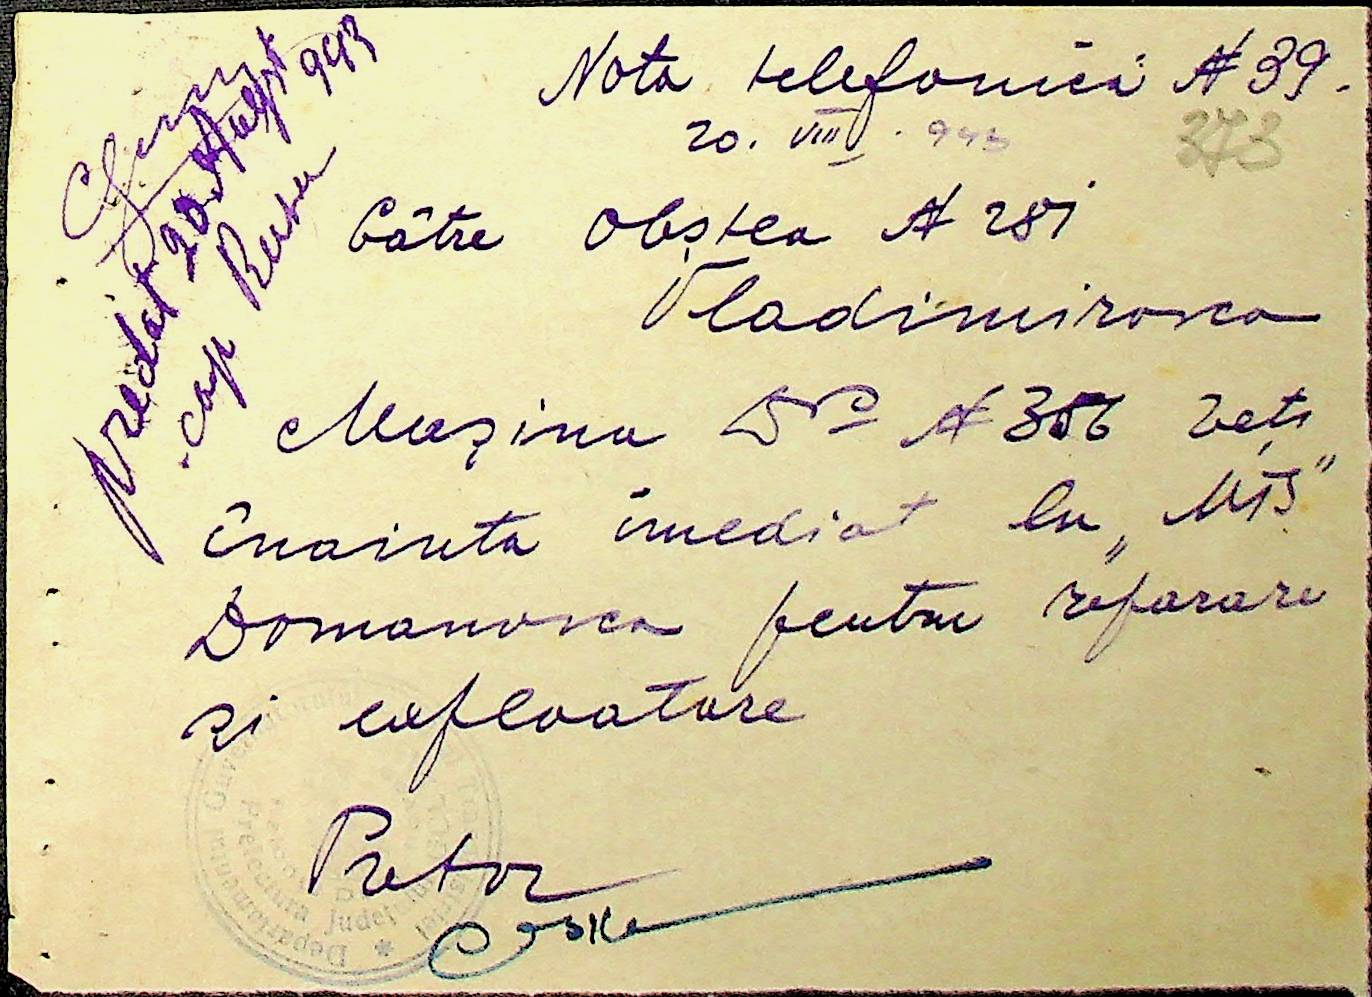 Nota telefonică N 39.
20. VIII. 943
373
Către Obștea N 281
Vladimirovca
Mașina N 356 veți
înainta imediat la „MTS"
Domanovca pentru reparare
și exploatare
Pretor
predat 20 August 943
cap
Guvernământul
Departamentul
Prefectura Județului